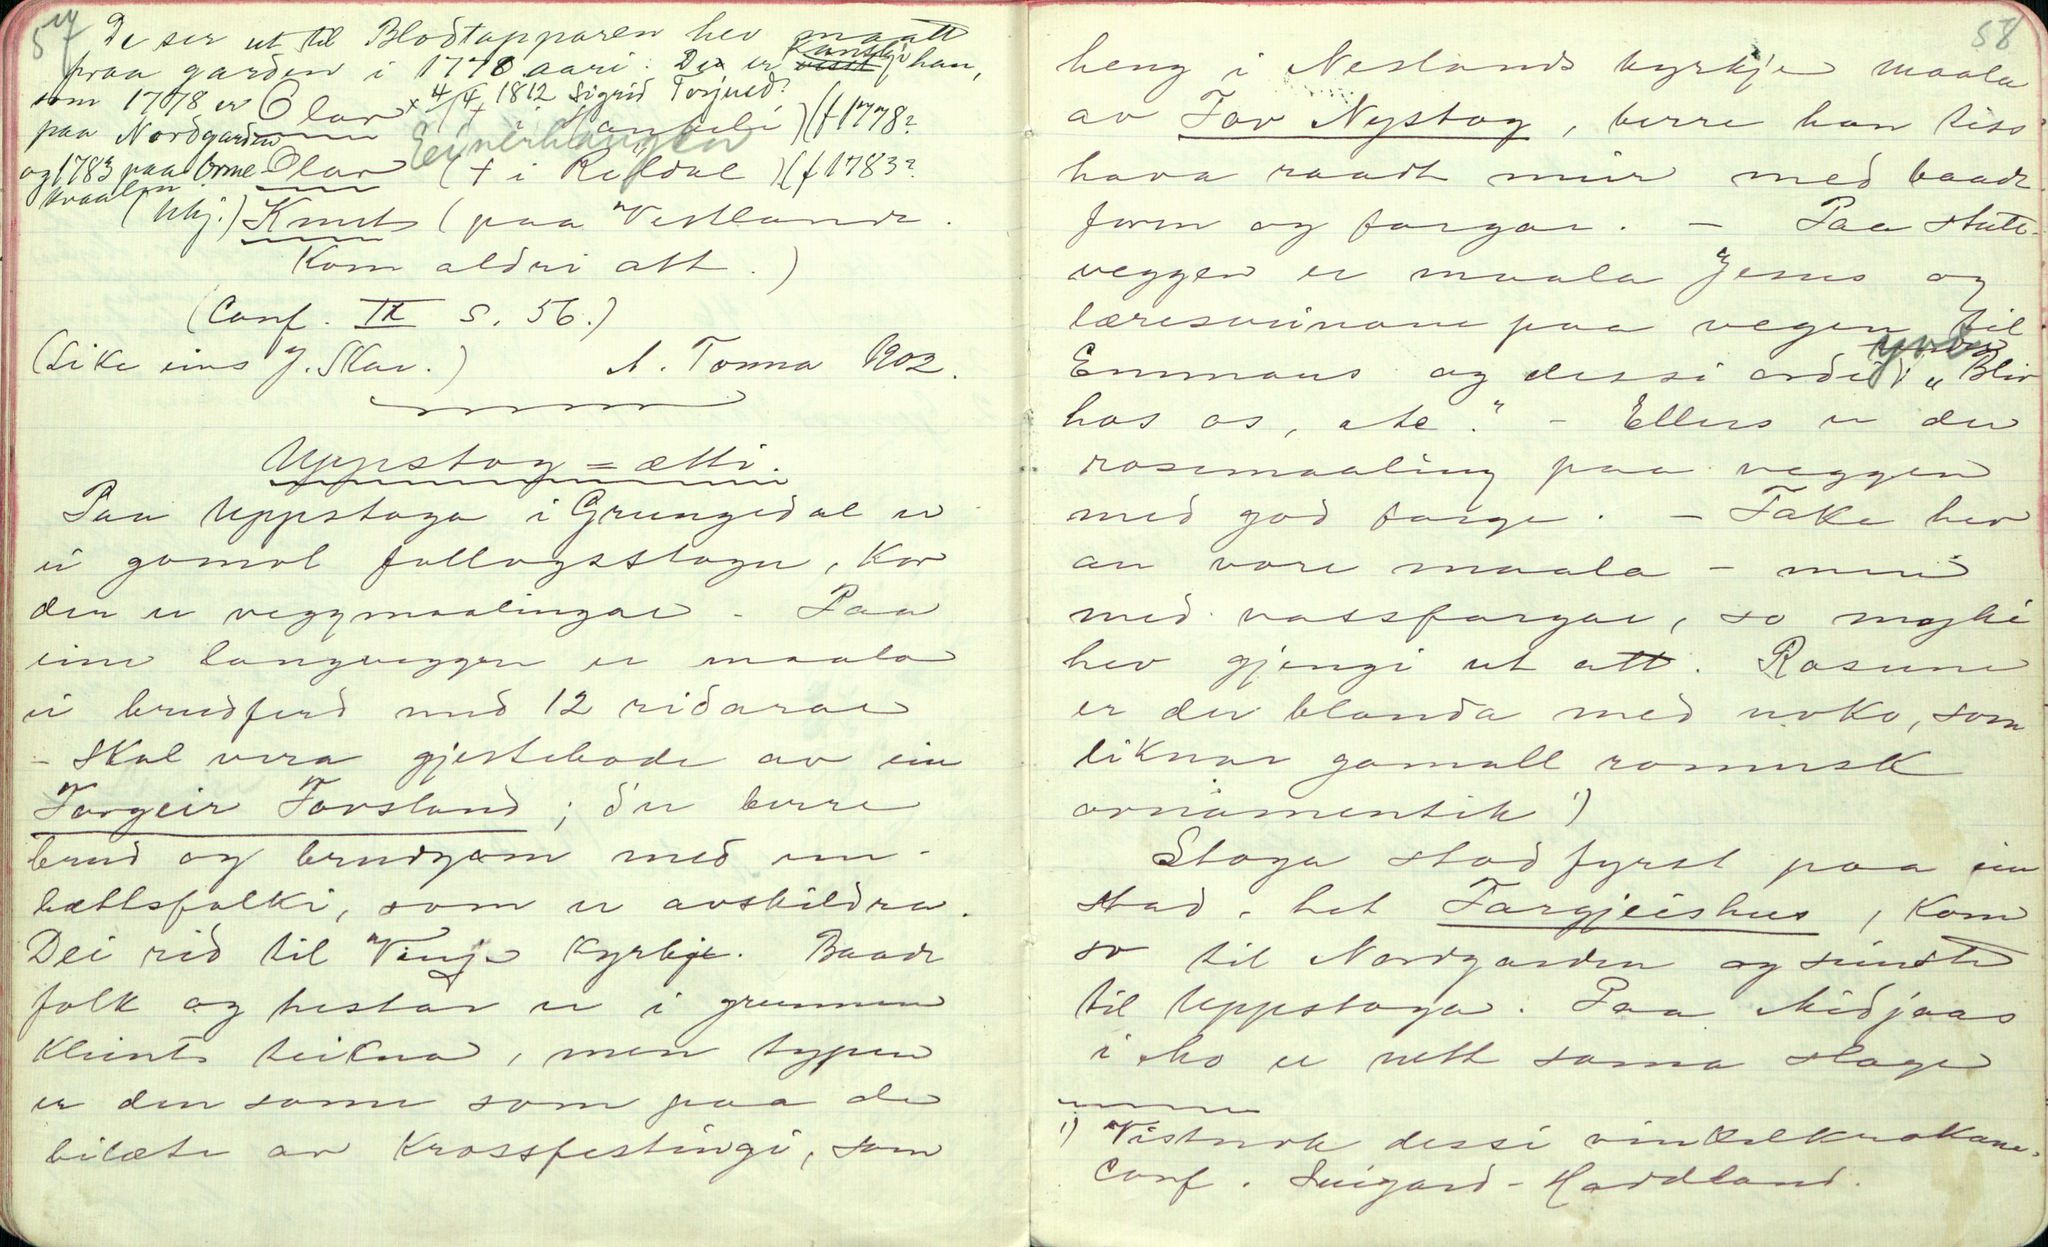 57
De ser ut til Blodtapparen hev maatt
fraa garden i 1778 aari. De er Kanskje han,
som 1778 er Olav x 4/4 1812 Sigrid Torjusd.
paa Nordgarden († i Mannheli) († 1778?
Einerhaugen
og 1783 paa Orme- Olav († i Røldal) († 1783?
kraaen
(ukj.) Knut (paa Vestlande.
Kom aldri att.)
(Conf. IX s. 56.)
(Like eins J. Skar.) A. Tonna 1902.
Uppstog=ætti.
Paa Uppstoga i Grungedal er
ei gomol fellogsstogu, kor
der er veggmaalingar – Paa
eine langveggen er maala
ei brudferd med 12 ridarar
– Skal vera gjestebode av ein
Torgeir Tovsland; d'er berre
brud og brudgom med em-
bættsfolki, som er avskildra.
Dei rid til Vinje kyrkje. Baade
folk og hestar er i grunnen
kleint teikna, men typen
er den same som paa de
bilæte av Krossfestingi, som
58
heng i Neslands kyrkje maala
av Tov Nystog, berre han tess
hava raadt meir med baade
form og fargar. – Paa stute-
veggen er maala Jesus og
læresveinane paa vegen til
Emmaus og dessi ordi yver „Bliv
hos os, etc." – Ellers er der
rosemaaling paa veggen
med god farge. – Take hev
au vore maala – men
med vassfargar, so mykje
hev gjengi ut att. Rosune
er der blanda med noko, som
liknar gamall romersk
ornamentik 1)
Stoga stod fyrst paa ein
stad, het Torgjeishus, kom
so til Nordgarden og seinste
til Uppstoga. Paa Midjaas
i Mo er nett sama slage
1) Vistnok dessi vinkelkrokane.
Conf. Seigard-Haddland.